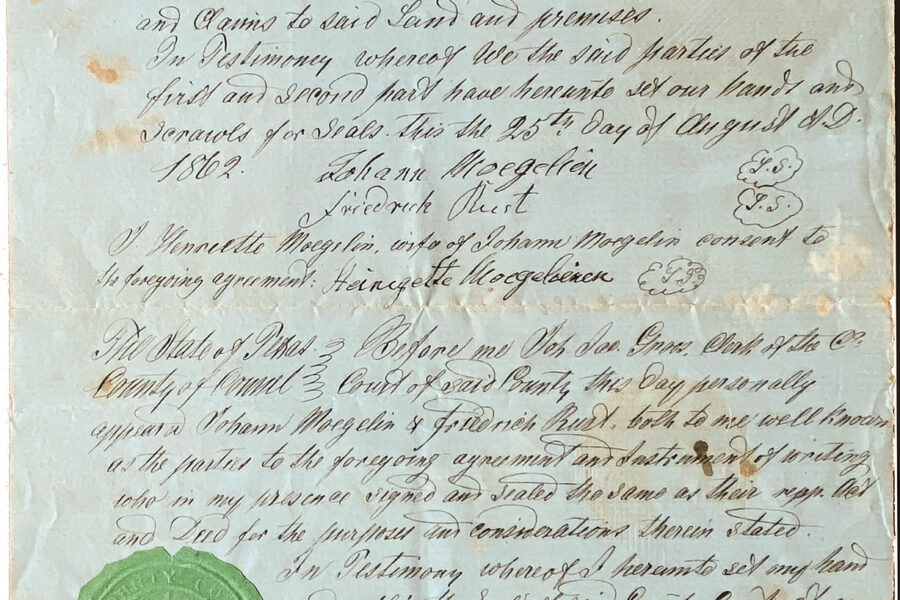 and Claims to said Land and premises.
In Testimony whereof We the said parties of the
first and second part have hereunto set our hands and
scrawls for Seals this the 25th day of August A.D.
1862. Johann Moegelin (L.S.)
Friedrich Rust (L.S.)
I Henriette Moegelin, wife of Johann Moegelin consent to
the foregoing agreement: Moegelinen (L.S.)
The State of Texas } Before me Joh. Jac. Groos, Clerk of the Co
County of Comal } Court of said County this day personally
appeard Johann Moegelin & Friedrich Rust, both to me well known
as the parties to the foregoing agreement and Instrument of writing
who in my presence signed and sealed the same as their resp. Act
and Deed for the purposes and considerations therein stated.
In Testimony whereof I hereunto set my hand